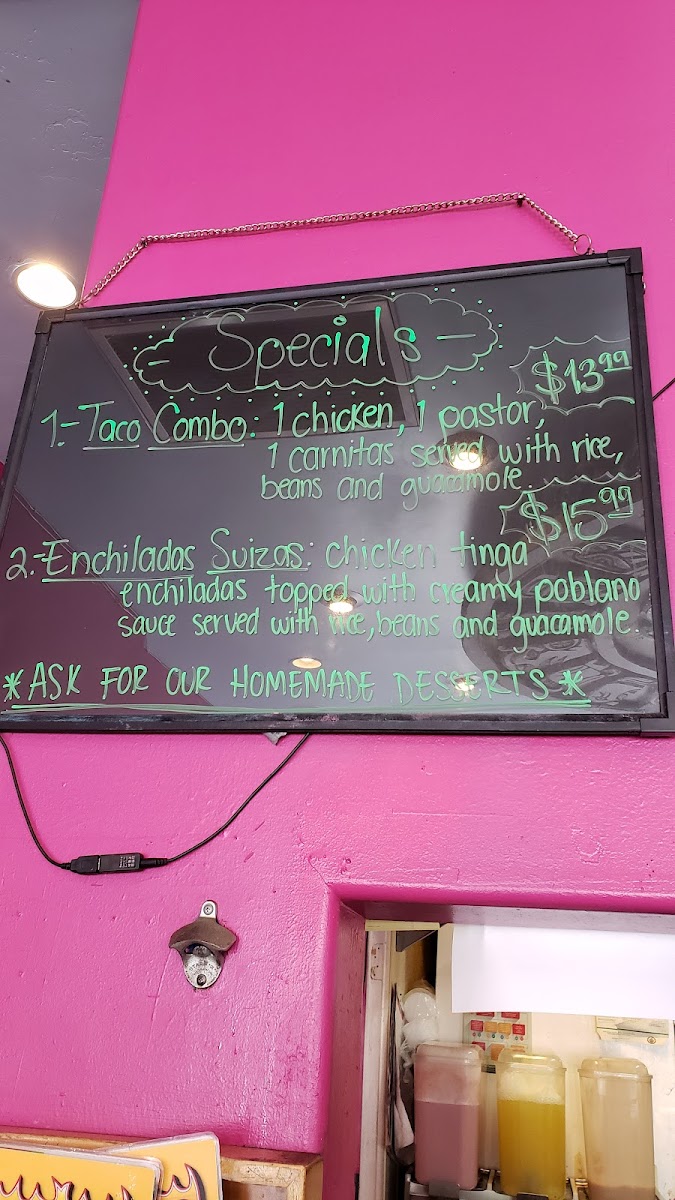 - Specials -
$13.99
1.- Taco Combo: 1 chicken, 1 pastor,
1 carnitas served with rice,
beans and guacamole.
$15.99
2.- Enchiladas Suizas: chicken tinga
enchiladas topped with creamy poblano
sauce served with rice, beans and guacamole.
*ASK FOR OUR HOMEMADE DESSERTS*